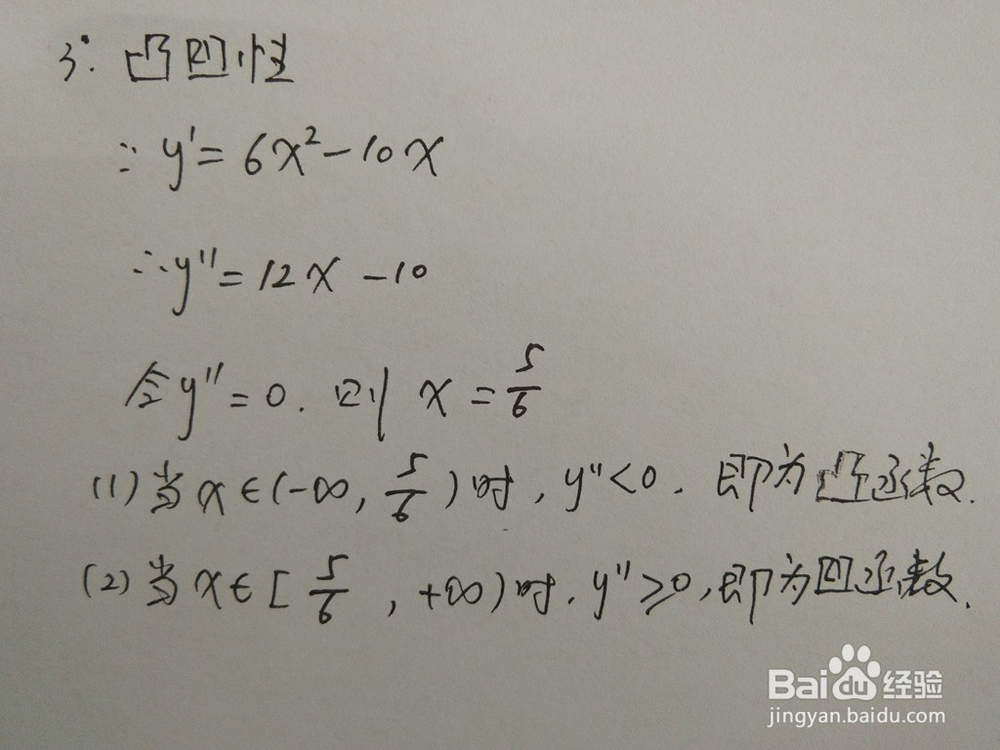 3°. 凸凹性
∵ y' = 6x² - 10x
∴ y'' = 12x - 10
令 y'' = 0. 则 x = 5/6
(1) 当 x ∈ (-∞, 5/6) 时, y'' < 0. 即为凸函数.
(2) 当 x ∈ [5/6, +∞) 时, y'' ≥ 0, 即为凹函数.
Baidu 经验
jingyan.baidu.com